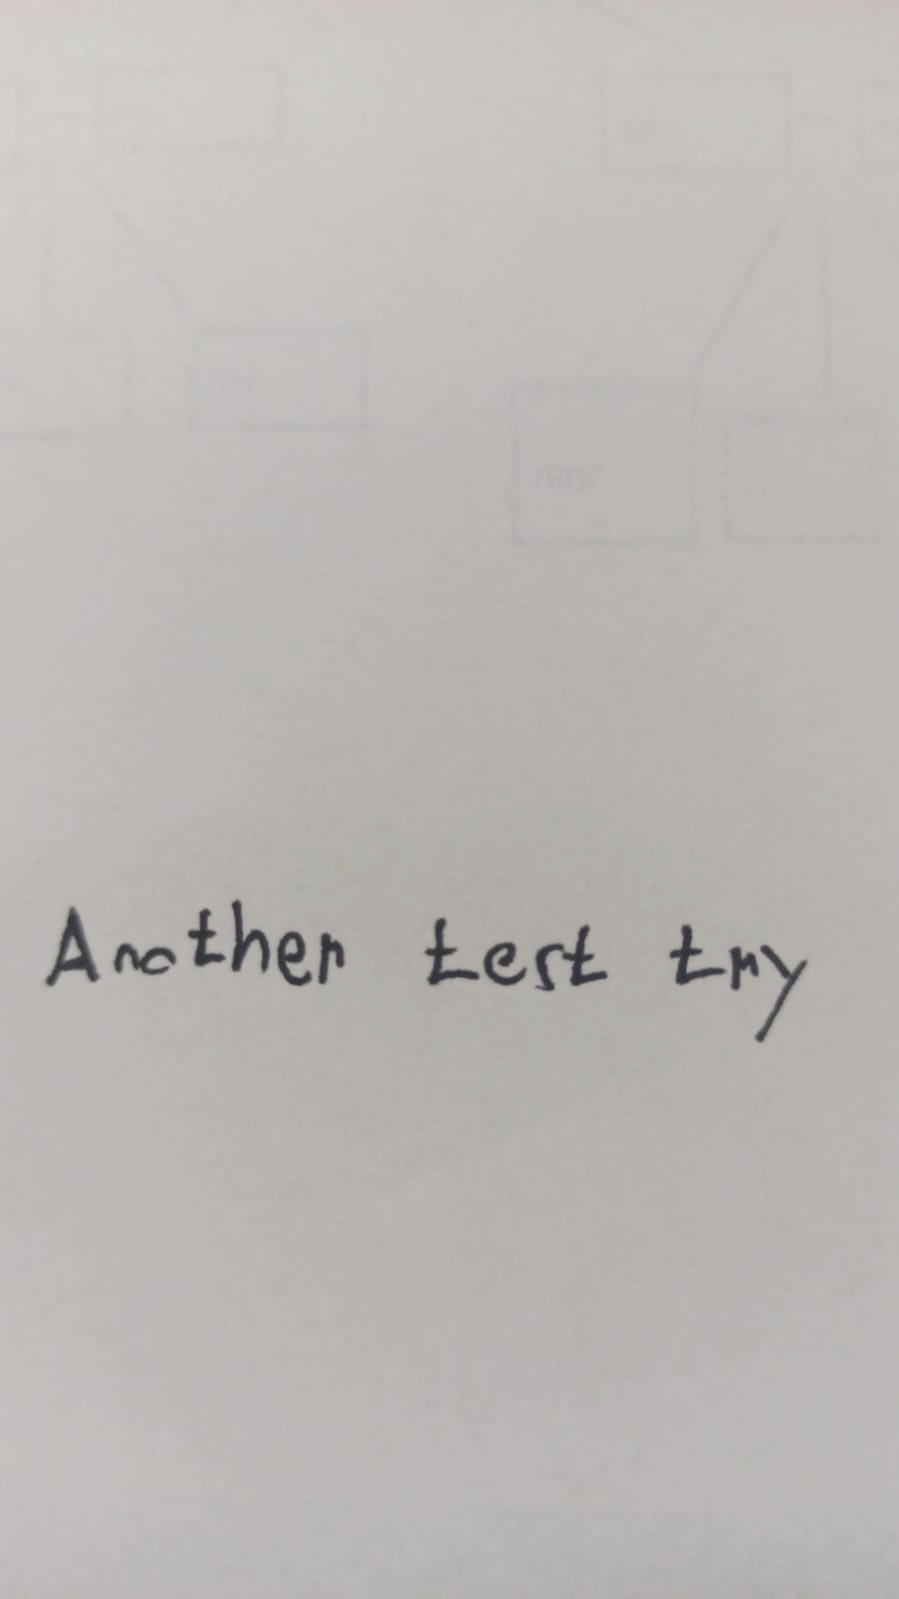 Another test try